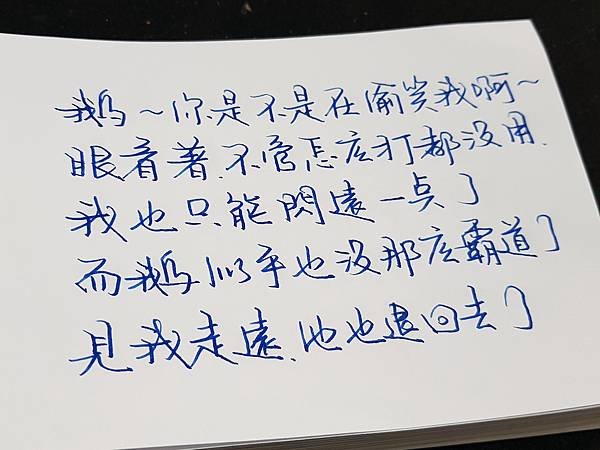 鵝~你是不是在偷笑我啊~
眼看著.不管怎広打都沒用.
我也只能閃遠一点了
而鵝似乎也沒那広霸道了
見我走遠.他也退回去了